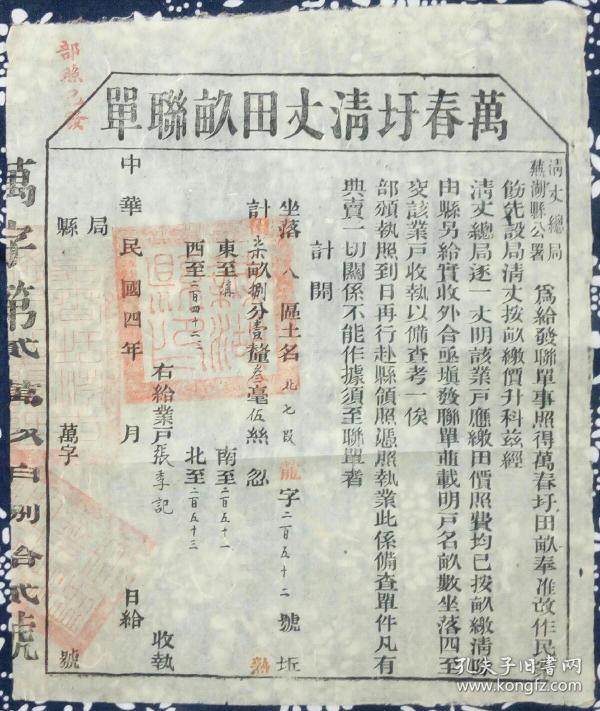 萬春圩清丈田畝聯單
清丈總局
蕪湖縣公署
為給發聯單事照得萬春圩田畝奉准改作民業
飭先設局清丈按畝繳價升科茲經
清丈總局逐一丈明該業戶應繳田價照費均已按畝繳清除
由縣另給實收外合亟塡發聯單並載明戶名畝數坐落四至
交該業戶收執以備查考一俟
部頒執照到日再行赴縣領照憑照執業此係備查單件凡有
典賣一切關係不能作據須至聯單者
計開
坐落八區土名北七段龍字二百五十二號坵
計田柒畝捌分壹釐叁毫伍絲忽 熟
東至溝 南至二百五十一
西至二百四十二 北至二百五十三
右給業戶張季記 收執
中華民國四年 月 日給
局
縣 萬字 號
部照已發
萬字第貳萬 百別拾貳號
孔夫子旧书网
www.kongfz.com